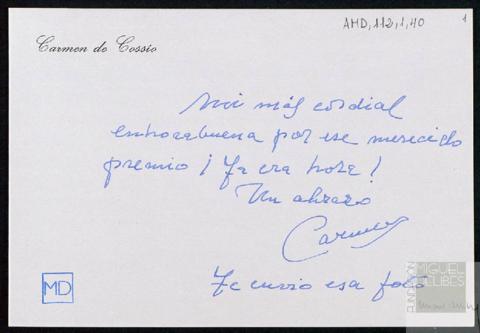 AMD,112,1,40
1
Carmen de Cossío
Mi más cordial
enhorabuena por ese merecido
premio ¡Ya era hora!
Un abrazo
Carmen
Te envío esa foto
MD
FUNDACIÓN
MIGUEL
DELIBES